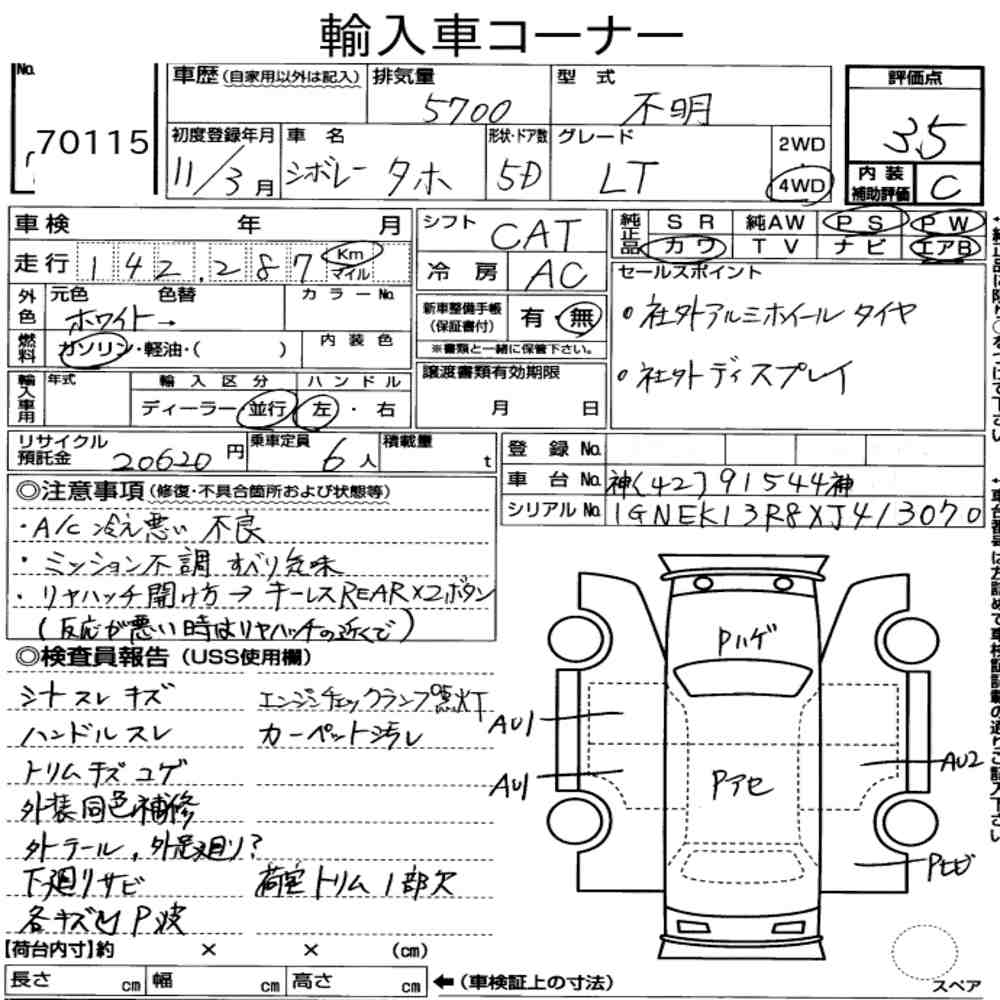 輸入車コーナー
No.
70115
車歴 (自家用以外は記入)
排気量
5700
型 式
不明
評価点
3.5
初度登録年月
11/3月
車 名
シボレー タホ
形状・ドア数
5D
グレード
LT
2WD
4WD
内装
補助評価
C
車検 年 月
シフト
CAT
純正品
SR 純AW PS PW
カワ TV ナビ エアB
走行 142,287 Km
マイル
冷房
AC
セールスポイント
外色
元色 色替
ホワイト→
カラーNo.
新車整備手帳
(保証書付)
有・無
※書類と一緒に保管下さい。
○社外アルミホイール タイヤ
燃料
ガソリン・軽油・( )
内装色
○社外ディスプレイ
輸入車用
年式
輸入区分
ディーラー・並行
ハンドル
左・右
譲渡書類有効期限
月 日
リサイクル
預託金
20620円
乗車定員
6人
積載量
t
登録 No.
車台 No. 神(42)91544神
シリアル No. 1GNEK13R8XJ413070
◎注意事項 (修復・不具合箇所および状態等)
・A/C 冷え悪い 不良
・ミッション不調 すべり気味
・リヤハッチ開け方→キーレスREAR×2ボタン
(反応が悪い時はリヤハッチの近くで)
◎検査員報告 (USS使用欄)
シートスレ キズ エンジンチェックランプ点灯
ハンドルスレ カーペット汚レ
トリムキズ コゲ
外装同色補修
外テール、外足廻り?
下廻りサビ 荷室トリム1部欠
各キズ凹 P波
Pハゲ
AU1
AU1
Pアセ
AU2
Pヒビ
【荷台内寸】約 × × (cm)
長さ cm 幅 cm 高さ cm
←(車検証上の寸法)
スペア